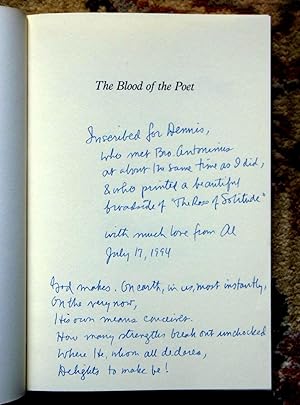 The Blood of the Poet
Inscribed for Dennis,
who met Bro. Antoninus
at about the same time as I did,
& who printed a beautiful
broadside of "The Rose of Solitude"
with much love from Al
July 17, 1994
God makes. On earth, in us, most instantly,
On the very now,
His own means conceives.
How many strengths break out unchocked
Where He, whom all declares,
Delights to make be!